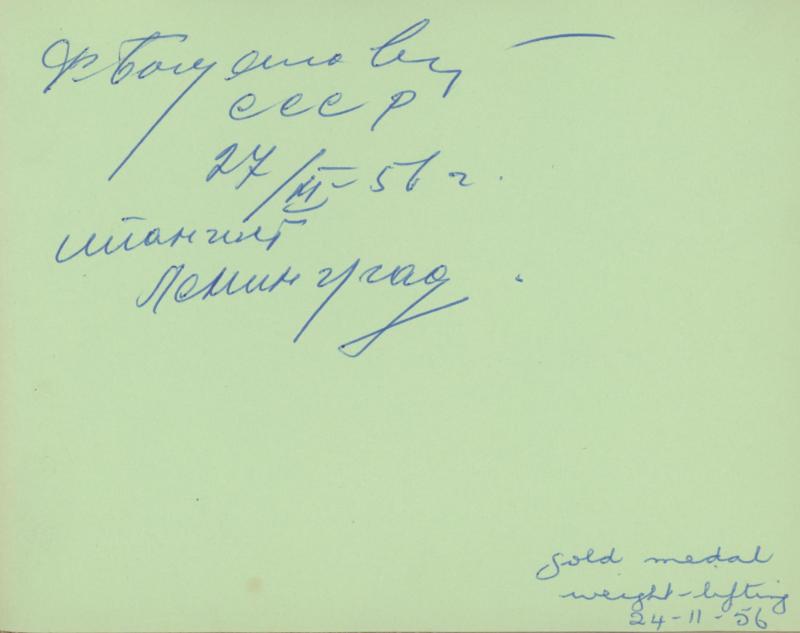 Ф Богдановский
СССР
27/XI-56 г.
штангист
Ленинград.
gold medal
weight-lifting
24-11-56